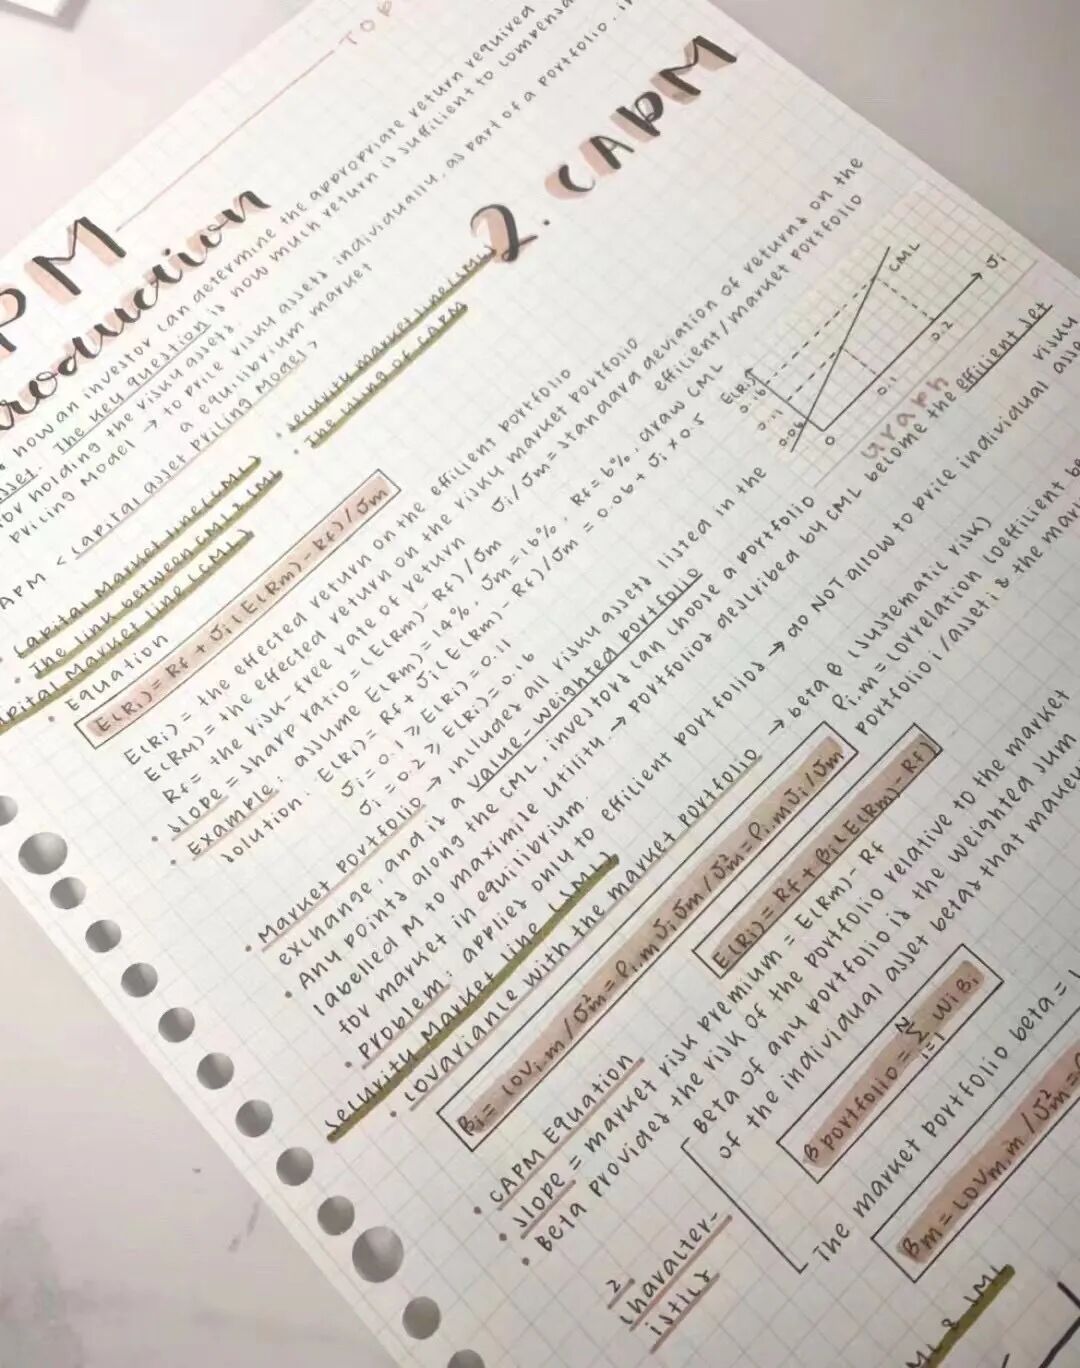 TOP
PM
2. CAPM
how an investor can determine the appropriate return required
asset. The key question is how much return is sufficient to compensa
for holding the risky asset.
Pricing Model → to price risky assets individually, as part of a portfolio. in
a equilibrium market
APM < Capital asset Pricing Model >
• Capital Market line (CML)
• The link between CML & SML
• Security market line (SML)
• The using of CAPM
pital Market line (CML)
• Equation
E(Ri) = Rf + σi (E(Rm) - Rf) / σm
E(Ri) = the effected return on the efficient portfolio
E(RM) = the effected return on the risky market portfolio
Rf = the risk-free rate of return
σi / σm = standard deviation of returns on the
efficient/market portfolio
• slope = sharp ratio = (E(Rm) - Rf) / σm
• Example: assume E(Rm) = 14%, σm = 16%, Rf = 6%, draw CML
solution: E(Ri) = Rf + σi (E(Rm) - Rf) / σm = 0.06 + σi × 0.5
σi = 0.1 ⇒ E(Ri) = 0.11
σi = 0.2 ⇒ E(Ri) = 0.16
E(Ri)
0.16
0.11
0.06
0
0.1
0.2
σi
CML
Graph
• Market portfolio → includes all risky assets listed in the
exchange, and is a value-weighted portfolio
• Any points along the CML, investors can choose a portfolio
labelled M to maximise utility → portfolios described by CML become the efficient set
for market in equilibrium.
risky
• Problem: applies only to efficient portfolios → do NOT allow to price individual asse
Security Market line (SML)
• Covariance with the market portfolio → beta β (systematic risk)
βi = COVi.m / σm² = Pi.m σi σm / σm² = Pi.m σi / σm
Pi.m = correlation coefficient be
portfolio i / asset i & the mar
• CAPM Equation
E(Ri) = Rf + βi (E(Rm) - Rf)
• slope = market risk premium = E(Rm) - Rf
• Beta provides the risk of the portfolio relative to the market
2
character-
istics
Beta of any portfolio is the weighted sum
of the individual asset betas that makeu
β portfolio = N Σ i=1 Wi βi
The market portfolio beta = 1
βm = COVm.m / σm² =
ML & SML